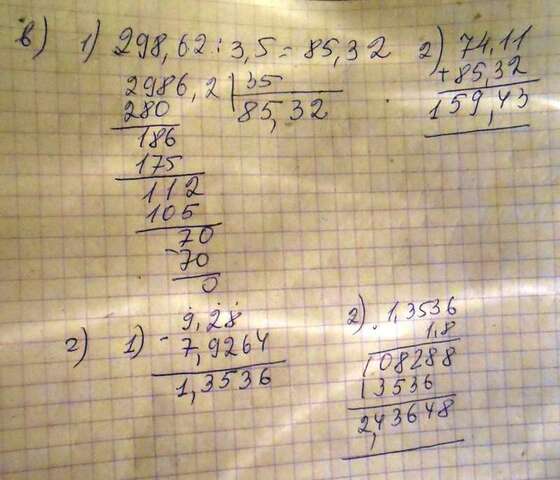 в) 1) 298,62 : 3,5 = 85,32
2986,2 | 35
280
85,32
186
175
112
105
70
- 70
0
2) 74,11
+ 85,32
159,43
г) 1) 9,28
- 7,9264
1,3536
2) . 1,3536
1,8
108288
13536
2,43648